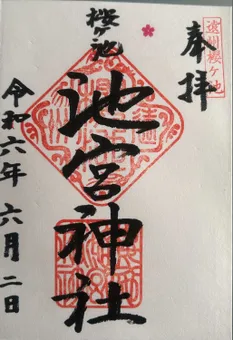 遠州桜ヶ池
奉拝
桜ヶ池
池宮神社
令和六年六月二日